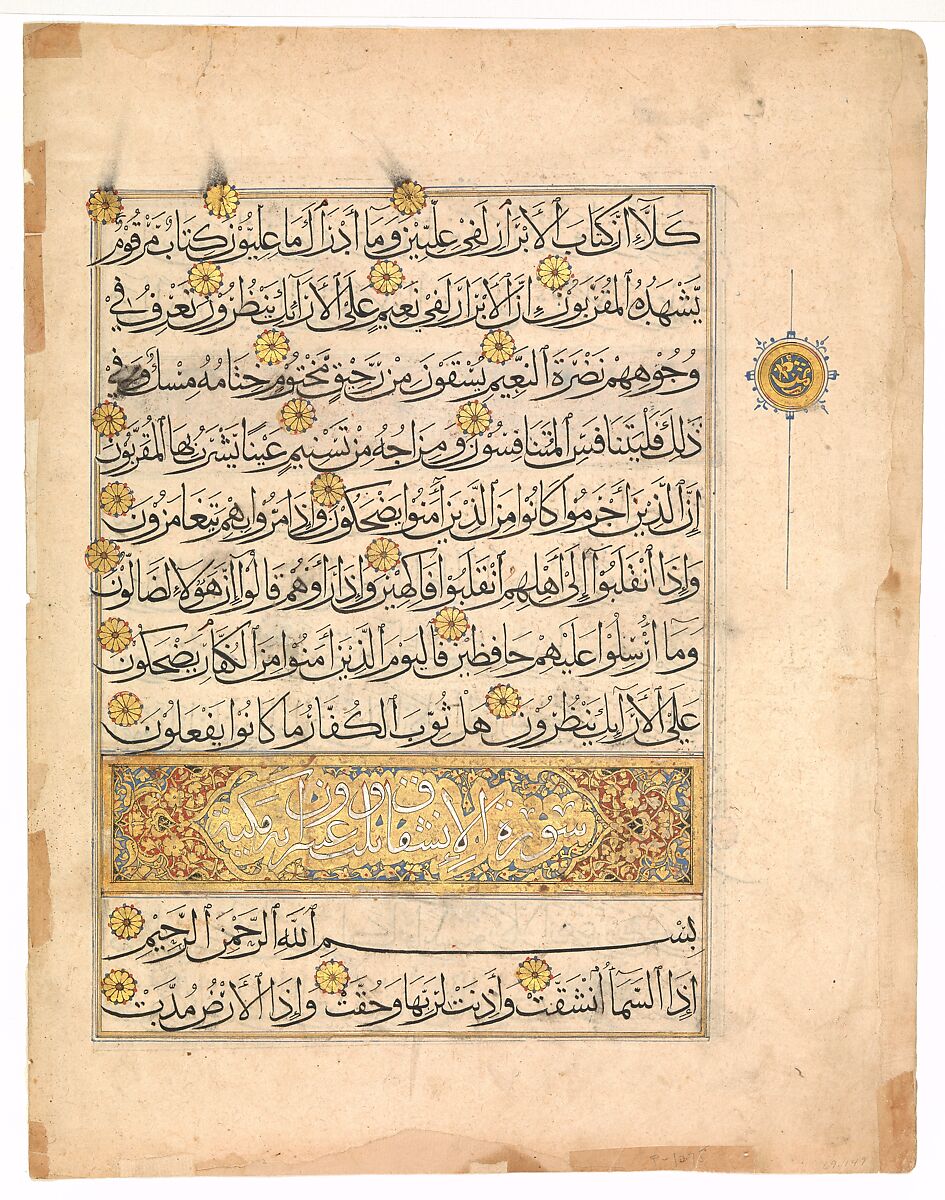 كَلَّا إِنَّ كِتَابَ الْأَبْرَارِ لَفِي عِلِّيِّينَ وَمَا أَدْرَاكَ مَا عِلِّيُّونَ كِتَابٌ مَرْقُومٌ
يَشْهَدُهُ الْمُقَرَّبُونَ إِنَّ الْأَبْرَارَ لَفِي نَعِيمٍ عَلَى الْأَرَائِكِ يَنْظُرُونَ تَعْرِفُ فِي
وُجُوهِهِمْ نَضْرَةَ النَّعِيمِ يُسْقَوْنَ مِنْ رَحِيقٍ مَخْتُومٍ خِتَامُهُ مِسْكٌ وَفِي
ذَلِكَ فَلْيَتَنَافَسِ الْمُتَنَافِسُونَ وَمِزَاجُهُ مِنْ تَسْنِيمٍ عَيْنًا يَشْرَبُ بِهَا الْمُقَرَّبُونَ
إِنَّ الَّذِينَ أَجْرَمُوا كَانُوا مِنَ الَّذِينَ آمَنُوا يَضْحَكُونَ وَإِذَا مَرُّوا بِهِمْ يَتَغَامَزُونَ
وَإِذَا انْقَلَبُوا إِلَى أَهْلِهِمُ انْقَلَبُوا فَاكِهِينَ وَإِذَا رَأَوْهُمْ قَالُوا إِنَّ هَؤُلَاءِ لَضَالُّونَ
وَمَا أُرْسِلُوا عَلَيْهِمْ حَافِظِينَ فَالْيَوْمَ الَّذِينَ آمَنُوا مِنَ الْكُفَّارِ يَضْحَكُونَ
عَلَى الْأَرَائِكِ يَنْظُرُونَ هَلْ ثُوِّبَ الْكُفَّارُ مَا كَانُوا يَفْعَلُونَ
سورة الانشقاق وعشرون اية مكية
بِسْمِ اللَّهِ الرَّحْمَنِ الرَّحِيمِ
إِذَا السَّمَاءُ انْشَقَّتْ وَأَذِنَتْ لِرَبِّهَا وَحُقَّتْ وَإِذَا الْأَرْضُ مُدَّتْ